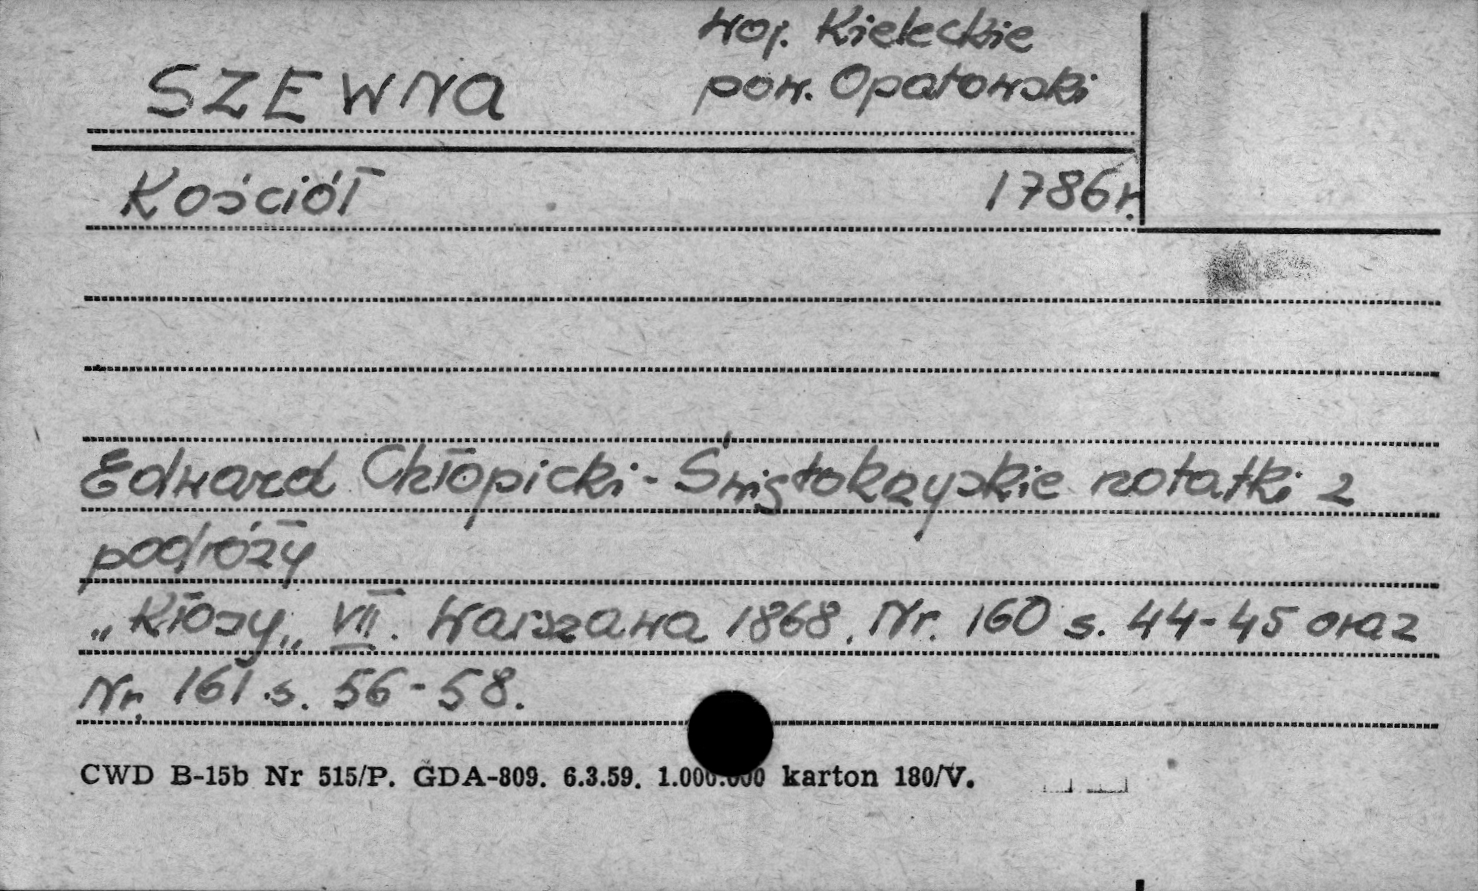 woj. Kieleckie
SZEWNA pow. Opatowski
Kościół 1786r.
Edward Chłopicki - Świętokrzyskie notatki z
podróży
„Kłosy„ VII. Warszawa 1868. Nr. 160 s. 44-45 oraz
Nr. 161 s. 56-58.
CWD B-15b Nr 515/P. GDA-809. 6.3.59. 1.000.000 karton 180/V.